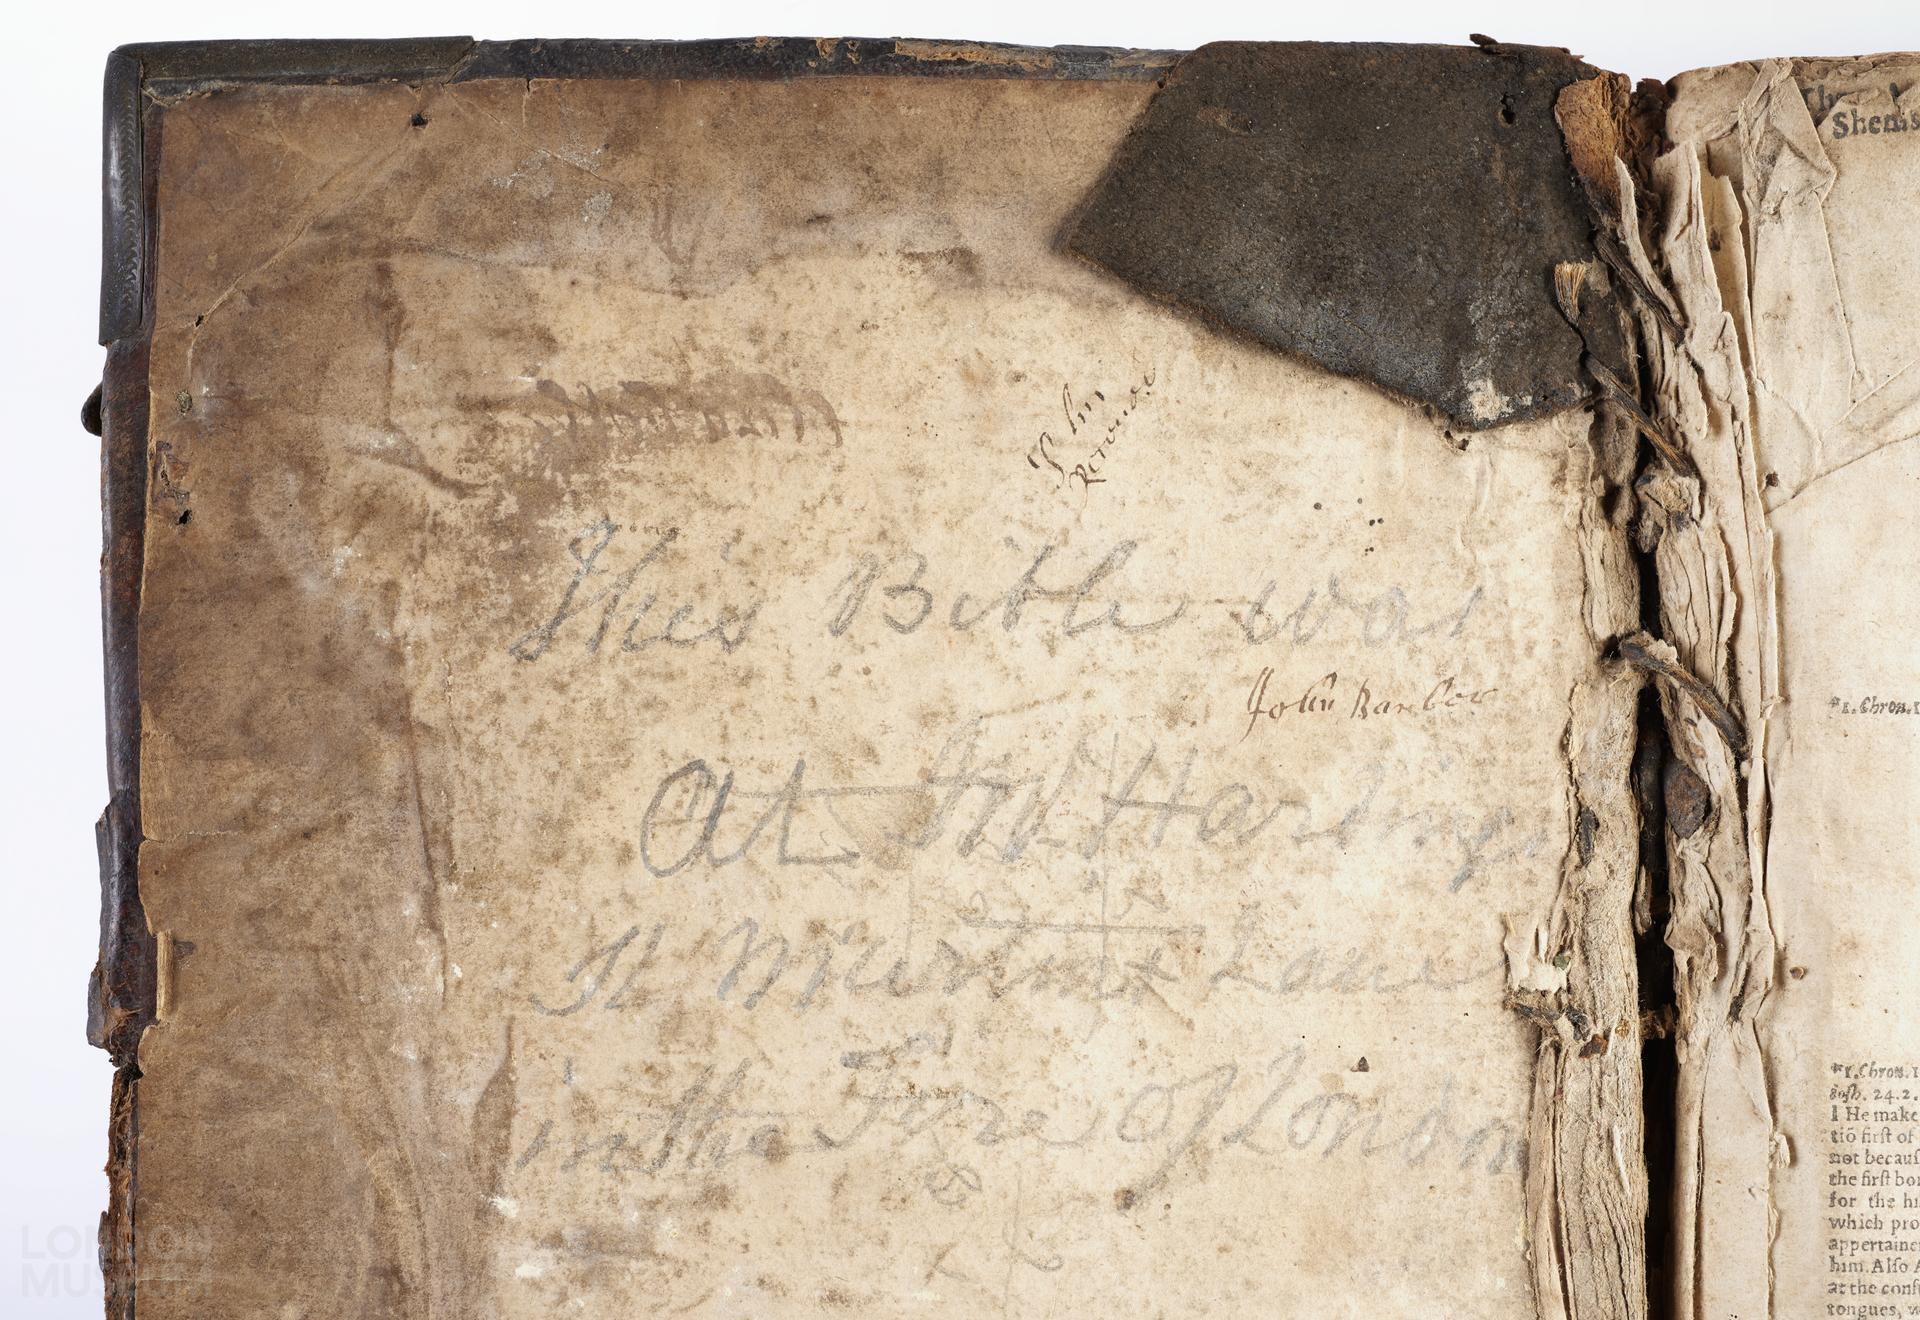 John
This Bible was
John Barber
At Mr Hastings
St Martins Lane
in the Fire Of London
The
Shems
*1. Chron. 1
*1. Chron. 1
Iosh. 24. 2.
1 He make
tiō first of
not becauſ
the firſt bor
for the hi
which pro
appertaine
him. Alſo A
at the conf
tongues, w
LONDON
MUSEUM